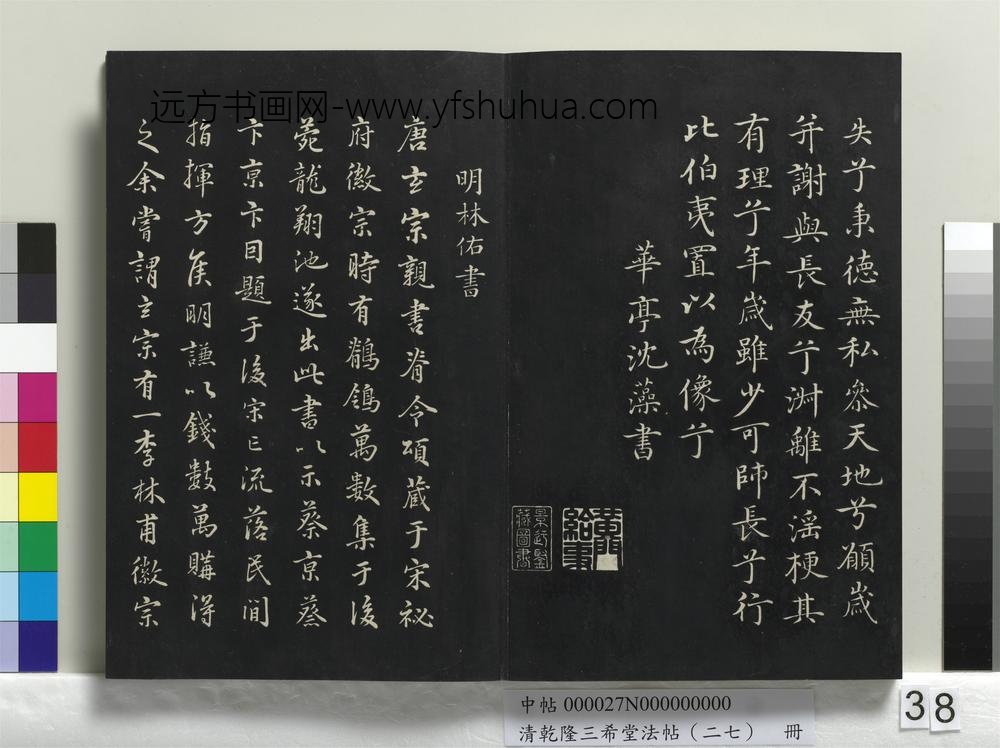 远方书画网-www.yfshuhua.com
失兮秉德無私參天地兮願歲
并謝與長友兮淑離不淫梗其
有理兮年歲雖少可師長兮行
比伯夷置以為像兮
華亭沈藻書
黃門給事
景文鑒藏圖書
明林佑書
唐玄宗親書脊令頌蔵于宋祕
府徽宗時有鶺鴒萬数集于後
苑龍翔池遂出此書以示蔡京蔡
卞京卞因題于後宋亡流落民間
指揮方侯明謙以錢數萬購得
之余嘗謂玄宗有一李林甫徽宗
中帖 000027N000000000
清乾隆三希堂法帖(二七) 冊
38